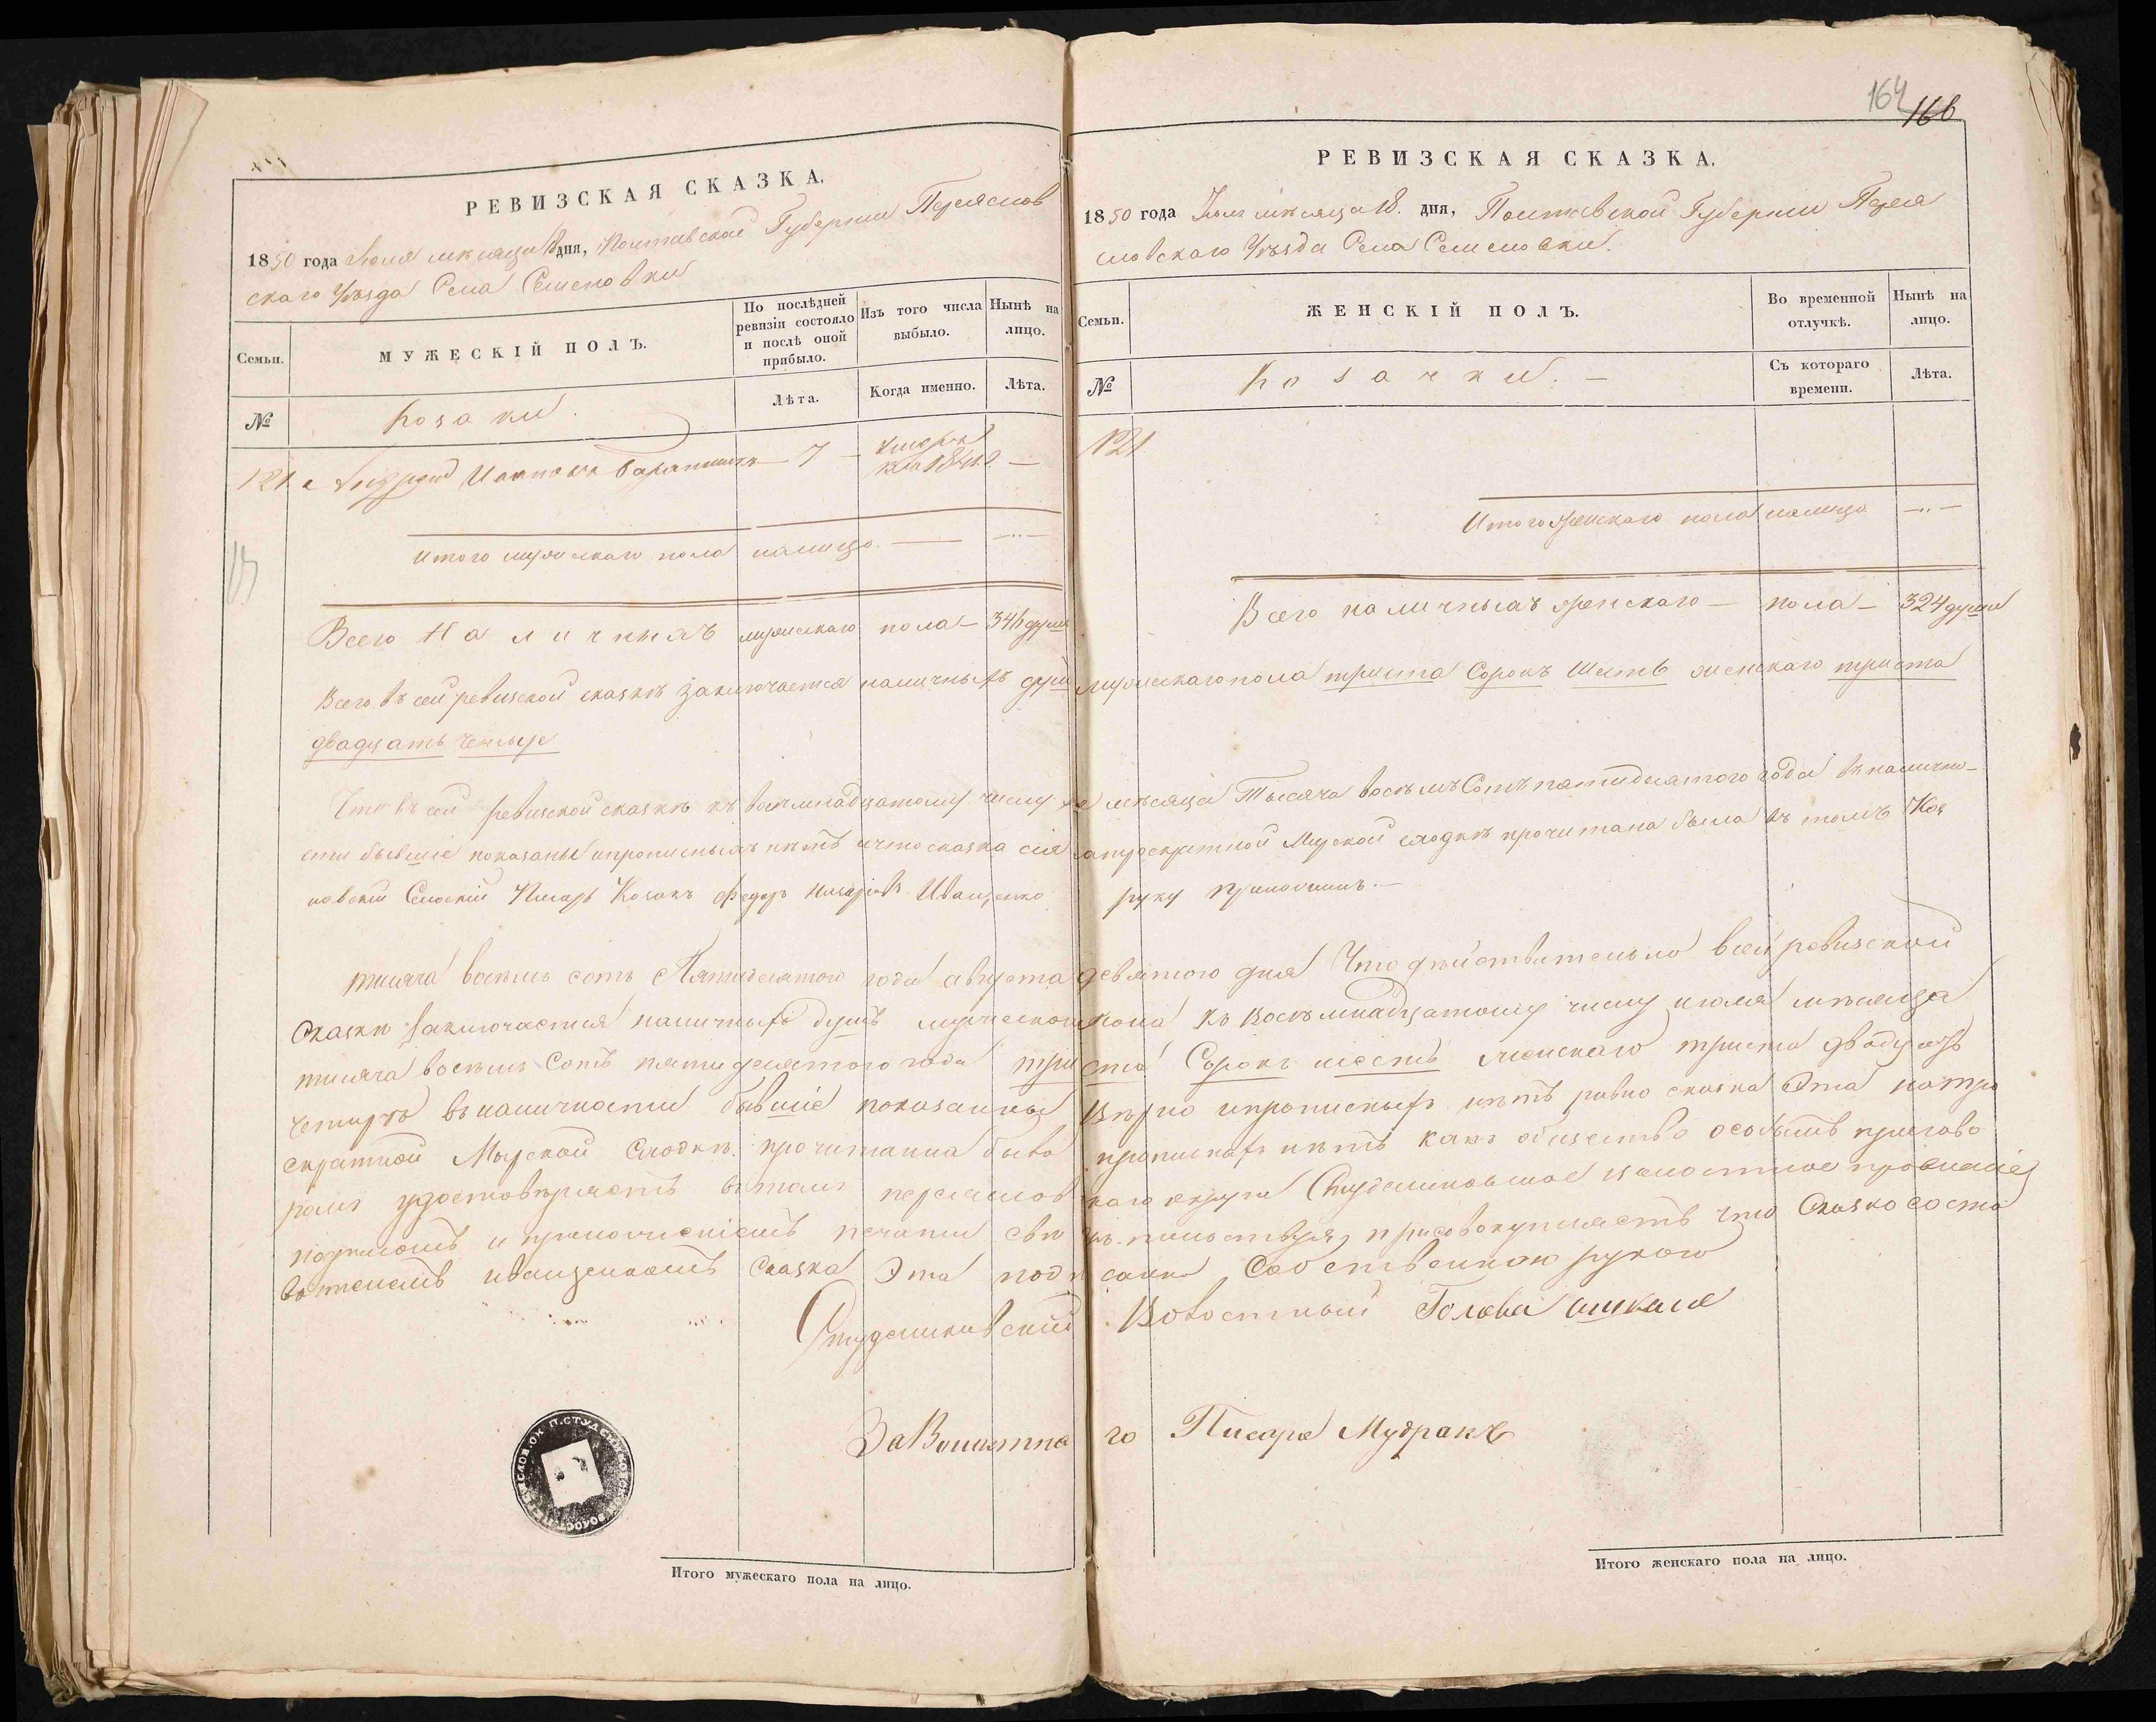 164
166
РЕВИЗСКАЯ СКАЗКА.
1850 года Июля мѣсяца 18 дня, Полтавской Губерніи Переяслов
скаго Уѣзда Села Семеновки
Семьи.
МУЖЕСКІЙ ПОЛЪ.
По послѣдней ревизіи состояло и послѣ оной прибыло.
Изъ того числа выбыло.
Нынѣ на лицо.
№
Козаки.
Лѣта.
Когда именно.
Лѣта.
121
7
Итого мужескаго пола налицо.
Всего Наличныхъ мужескаго пола — 346 душъ
РЕВИЗСКАЯ СКАЗКА.
1850 года Июля мѣсяца 18. дня, Полтавской Губерніи Перея
словскаго Уѣзда Села Семеновки.
Семьи.
ЖЕНСКІЙ ПОЛЪ.
Во временной отлучкѣ.
Нынѣ на лицо.
№
Козачки. —
Съ котораго времени.
Лѣта.
121
Итого женскаго пола налицо
Всего наличныхъ женскаго — пола — 324 души
Всего въ сей ревизской сказкѣ заключается наличныхъ душъ мужескаго пола триста Сорокъ Шесть женскаго триста
двадцать четыре
Что въ сей ревизской сказкѣ къ восемнадцатому числу мѣсяца Тысяча восемъ Сотъ пятидесятаго года въ налично-
сти бывшіе показаны и прописныхъ нѣтъ и что сказка сія на троекратной Мирской сходкѣ прочитана была въ томъ
Сельскій Писарь Козакъ Федоръ Иващенко руку приложилъ. —
тисяча восемъ сотъ Пятидесятого года августа девятого дня Что дѣйствительно всей ревизской
Сказкѣ заключается наличныхъ душъ мужеского пола къ восемнадцатому числу июля мѣсяца
тисяча восемъ Сотъ пятидесятого года триста Сорокъ шесть женскаго триста двадцать
четыре въ наличности бывшіе показанны вѣрно и прописныхъ нѣтъ равно сказка Эта натро
екратной Мырской Сходкѣ прочитанна быво прописныхъ нѣтъ какъ общество особымъ пригово
ромъ удостовѣряетъ въ томъ переяслов скаго округа Студениковское волостное правленіе
подписомъ и приложеніемъ печати свидѣтельствуя, присовокупляетъ что Сказко соста
вителемъ иващенкомъ Сказка Эта подписанна Собственною рукою
Студениковский Волостный Голова
За Волостнаго Писаря Мудракъ
Итого мужескаго пола на лицо.
Итого женскаго пола на лицо.